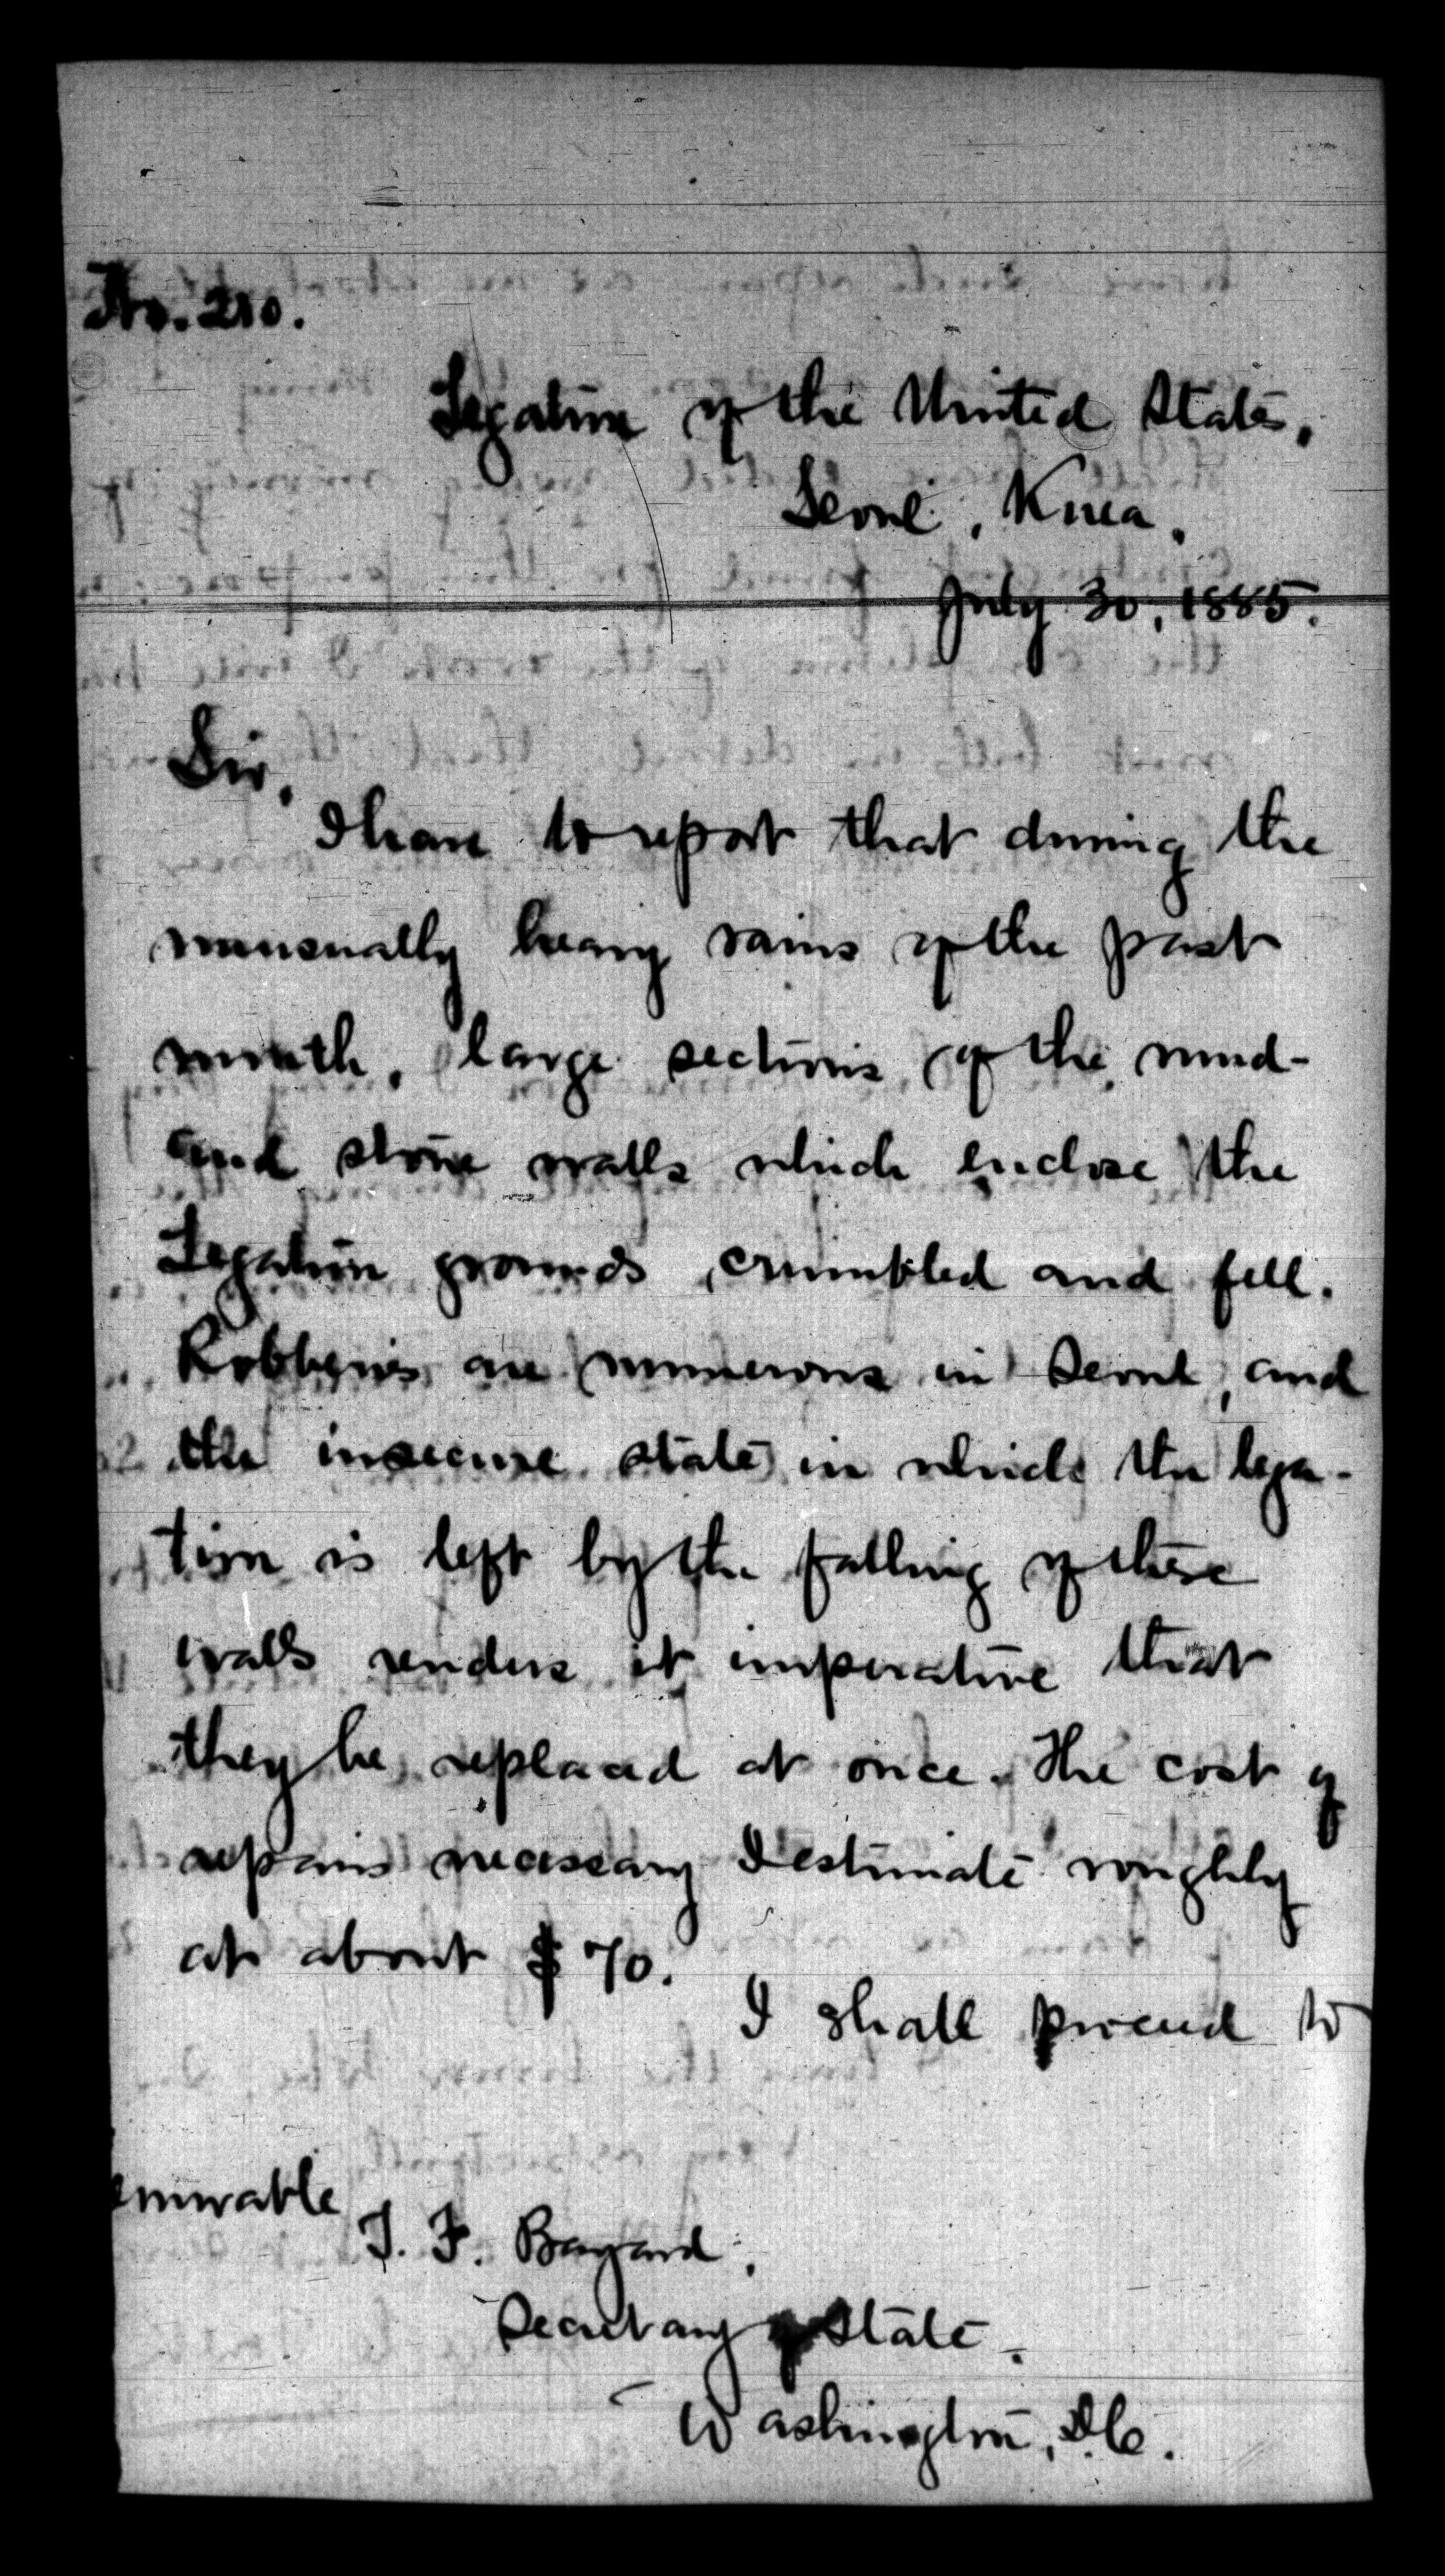 No. 210.
Legation of the United States,
Seoul, Korea,
July 30, 1885.
Sir,
I have to report that during the
unusually heavy rains of the past
month, large sections of the mud-
and stone walls which enclose the
Legation grounds, crumbled and fell.
Robberies are numerous in Seoul, and
the insecure state in which the lega-
tion is left by the falling of these
walls renders it imperative that
they be replaced at once. The cost of
repairs necessary I estimate roughly
at about $70.
I shall proceed to
onorable
T. F. Bayard,
Secretary of State.
Washington, D.C.